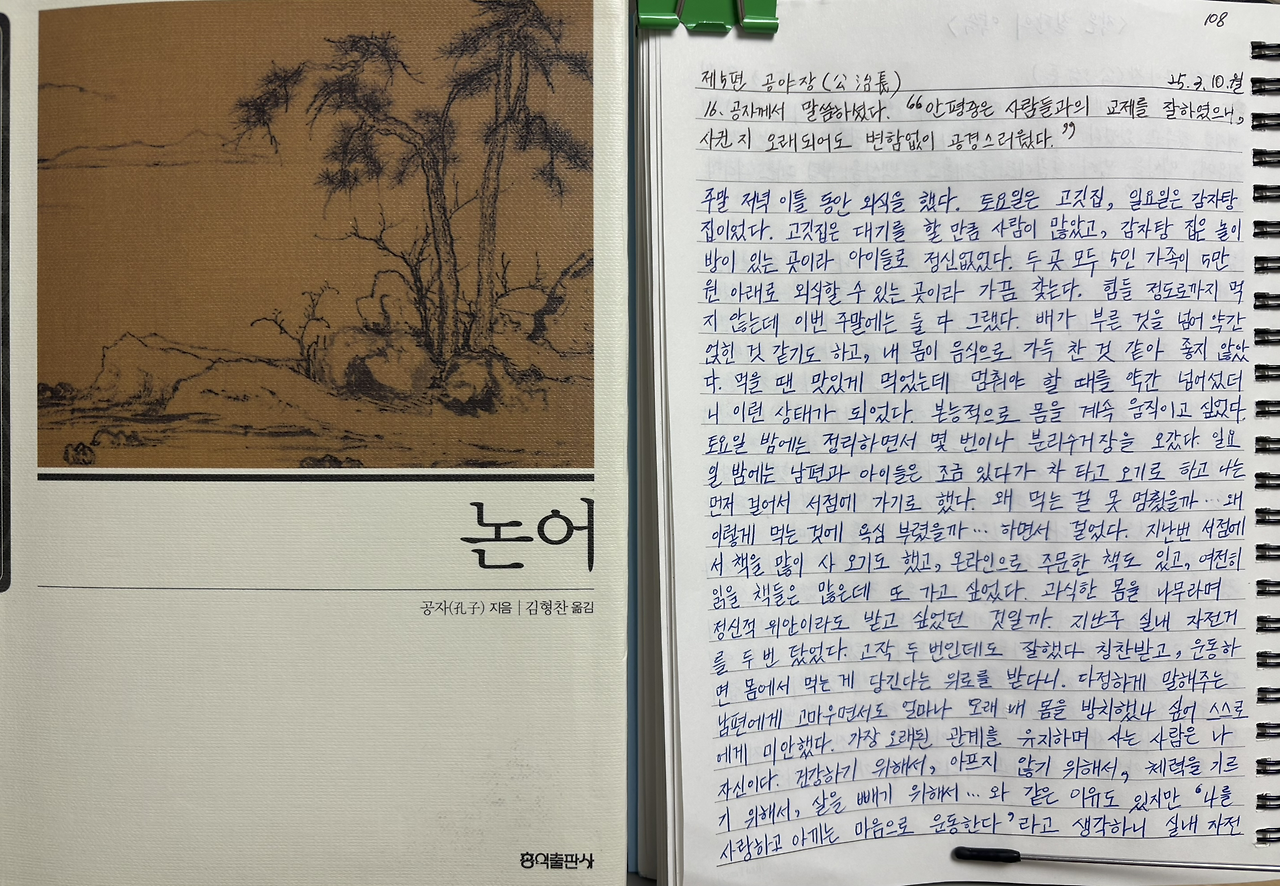 논어
공자(孔子) 지음 | 김형찬 옮김
홍익출판사
108
제5편 공야장(公冶長) 25.3.10.월
16. 공자께서 말씀하셨다. "안평중은 사람들과의 교제를 잘하였으니,
사귄 지 오래되어도 변함없이 공경스러웠다."
주말 저녁 이틀 동안 외식을 했다. 토요일은 고깃집, 일요일은 감자탕
집이었다. 고깃집은 대기를 할 만큼 사람이 많았고, 감자탕 집은 놀이
방이 있는 곳이라 아이들로 정신없었다. 두 곳 모두 5인 가족이 5만
원 아래로 외식할 수 있는 곳이라 가끔 찾는다. 힘들 정도로까지 먹
지 않는데 이번 주말에는 둘 다 그랬다. 배가 부른 것을 넘어 약간
얹힌 것 같기도 하고, 내 몸이 음식으로 가득 찬 것 같아 좋지 않았
다. 먹을 땐 맛있게 먹었는데 멈춰야 할 때를 약간 넘어섰더
니 이런 상태가 되었다. 본능적으로 몸을 계속 움직이고 싶었다.
토요일 밤에는 정리하면서 몇 번이나 분리수거장을 오갔다. 일요
일 밤에는 남편과 아이들은 조금 있다가 차 타고 오기로 하고 나는
먼저 걸어서 서점에 가기로 했다. 왜 먹는 걸 못 멈췄을까… 왜
이렇게 먹는 것에 욕심 부렸을까… 하면서 걸었다. 지난번 서점에
서 책을 많이 사 오기도 했고, 온라인으로 주문한 책도 있고, 여전히
읽을 책들은 많은데 또 가고 싶었다. 과식한 몸을 나무라며
정신적 위안이라도 받고 싶었던 것일까. 지난주 실내 자전거
를 두 번 탔었다. 고작 두 번인데도 잘했다 칭찬받고, 운동하
면 몸에서 먹는 게 당긴다는 위로를 받다니. 다정하게 말해주는
남편에게 고마우면서도 얼마나 오래 내 몸을 방치했나 싶어 스스로
에게 미안했다. 가장 오래된 관계를 유지하며 사는 사람은 나
자신이다. 건강하기 위해서, 아프지 않기 위해서, 체력을 기르
기 위해서, 살을 빼기 위해서… 와 같은 이유도 있지만 '나를
사랑하고 아끼는 마음으로 운동한다'라고 생각하니 실내 자전